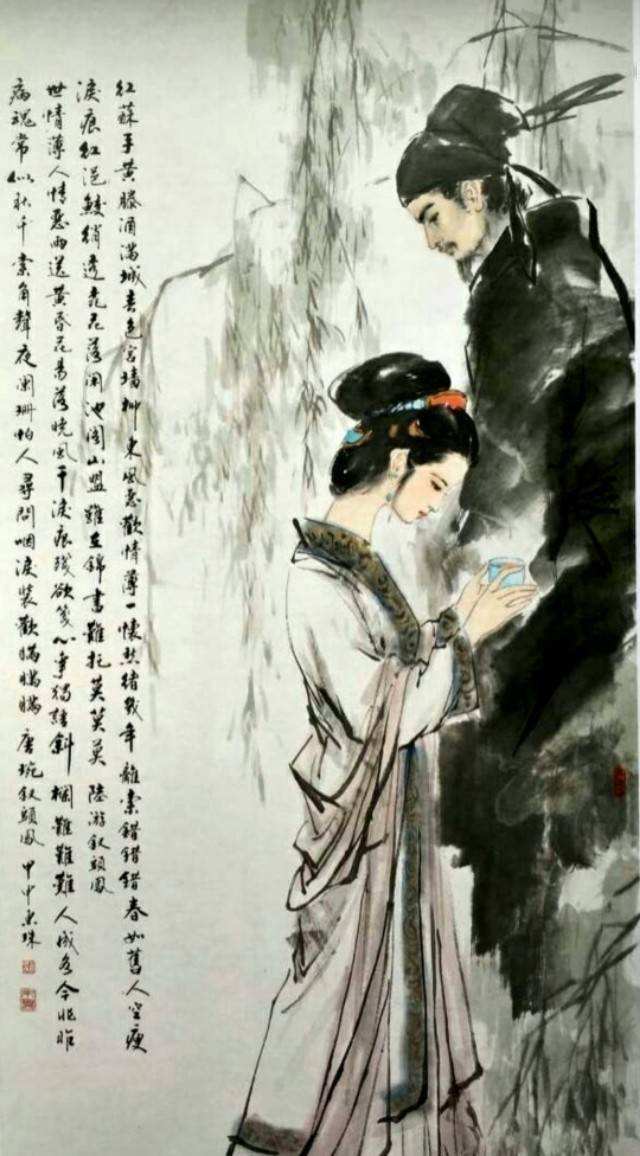 红蘇手黄滕酒满城春色宫墙柳東風惡歡情薄一懷愁绪幾年離索錯錯錯春如舊人空瘦
淚痕红浥鲛绡透桃花落闲池阁山盟雖在錦書難托莫莫莫 陸游釵頭鳳
世情薄人情惡雨送黄昏花易落曉風干淚痕残欲笺心事獨語斜欄難難難人成各今非昨
病魂常似秋千索角聲夜闌珊怕人尋問咽淚装歡瞒瞒瞒 唐琬釵頭鳳 甲申珠